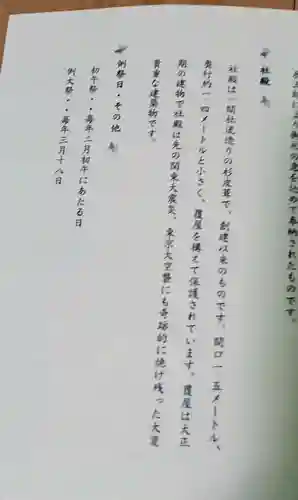 御礼の意を込めて奉納されたものです。
社殿
社殿は一間社流造りの杉皮葺で、創建以来のものです。間口一・五メートル、
奥行約一・四メートルと小さく、覆屋を構えて保護されています。覆屋は大正
期の建物で社殿は先の関東大震災、東京大空襲にも奇跡的に焼け残った大変
貴重な建築物です。
例祭日・その他
初午祭・・毎年二月初午にあたる日
例大祭・・毎年三月十八日